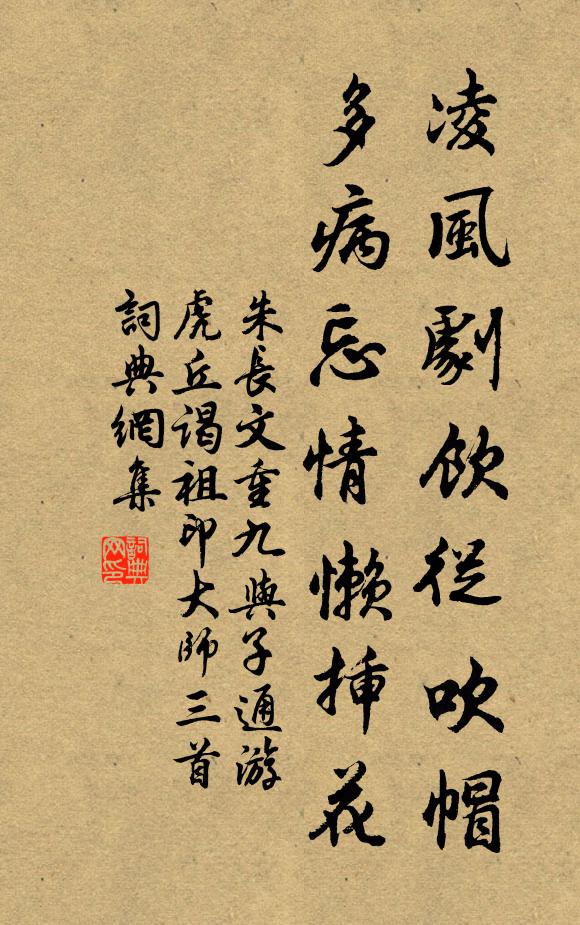 凌風劇飲從吹帽
多病忘情懶插花
朱長文重九與子通游
虎丘謁祖印大師三首
詞典網集
詞典网印